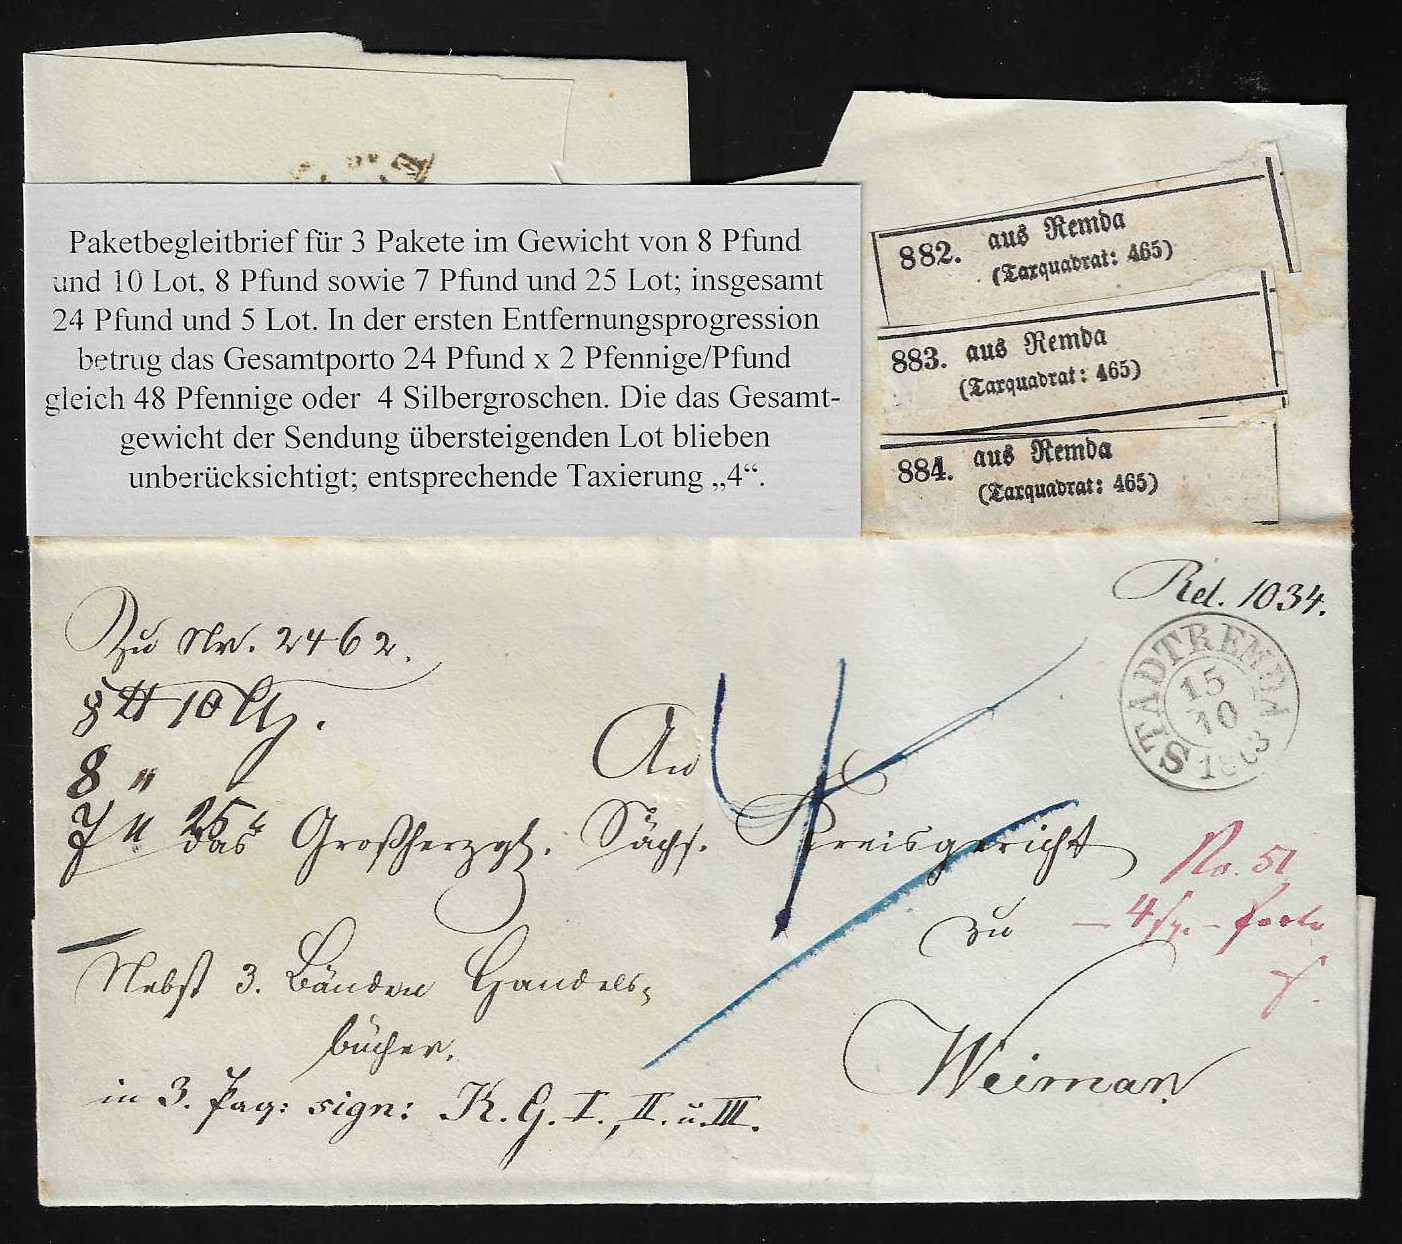 Paketbegleitbrief für 3 Pakete im Gewicht von 8 Pfund
und 10 Lot, 8 Pfund sowie 7 Pfund und 25 Lot; insgesamt
24 Pfund und 5 Lot. In der ersten Entfernungsprogression
betrug das Gesamtporto 24 Pfund x 2 Pfennige/Pfund
gleich 48 Pfennige oder 4 Silbergroschen. Die das Gesamt-
gewicht der Sendung übersteigenden Lot blieben
unberücksichtigt; entsprechende Taxierung „4“.
882. aus Remda
(Taxquadrat: 465)
883. aus Remda
(Taxquadrat: 465)
884. aus Remda
(Taxquadrat: 465)
Rel. 1034.
STADTREMDA
15
10
1863
Zu Nr. 2462.
8 ℔ 10
8 "
7 " 25
4
An
das Großherzgl. Sächs. Kreisgericht
zu
Weimar.
No. 51
4 Porto
Nebst 3. Bänden Handels-
bücher.
in 3. Paq: sign: K. G. I., II. u. III.